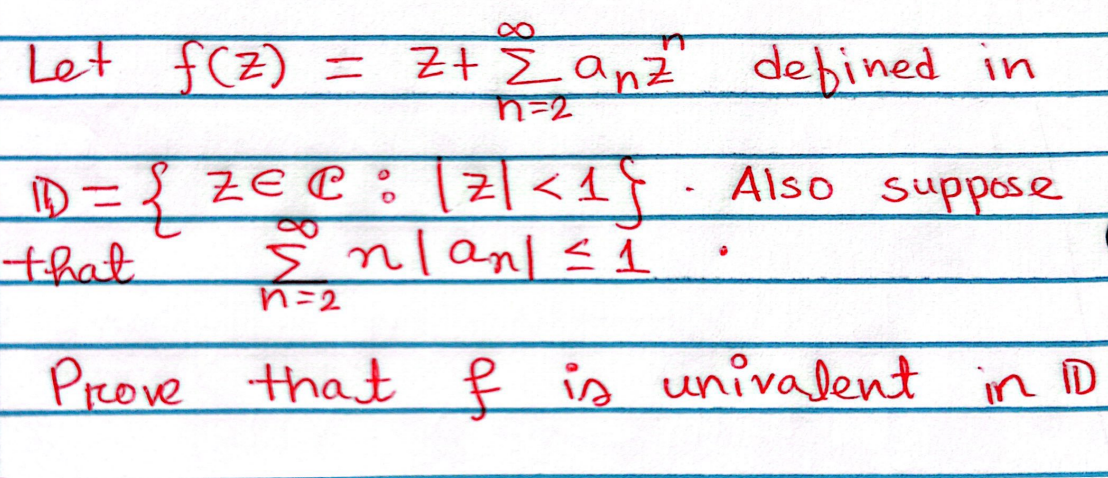 Let f(z) = z + ∑_{n=2}^{∞} a_n z^n defined in
𝔻 = { z ∈ ℂ : |z| < 1 } . Also suppose
that ∑_{n=2}^{∞} n |a_n| ≤ 1 .
Prove that f is univalent in 𝔻